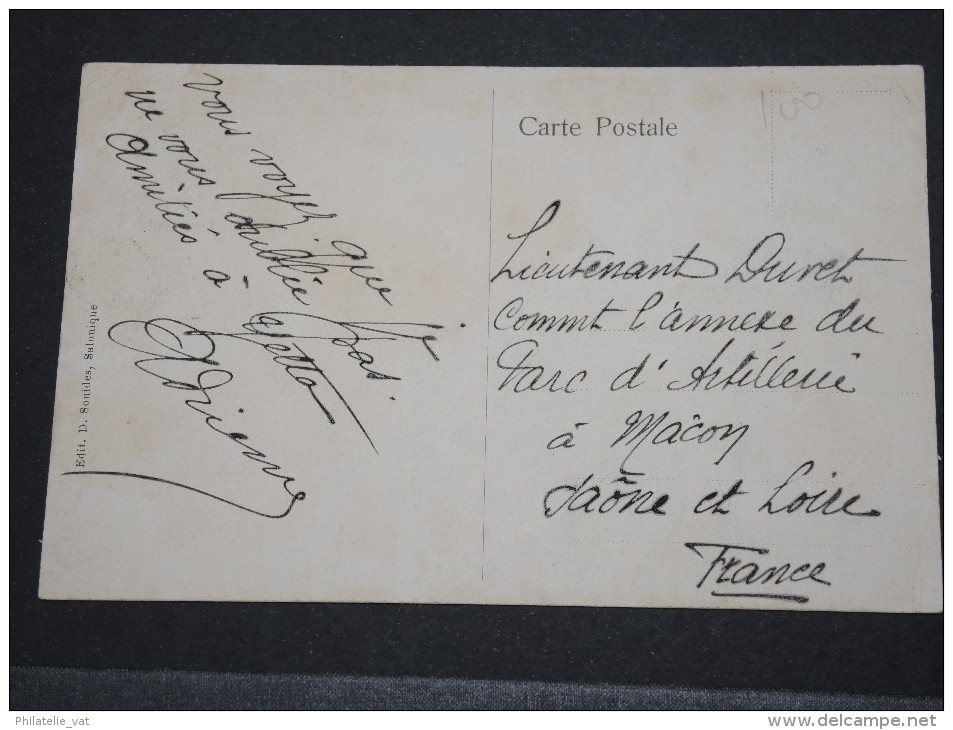 Carte Postale
100
Vous voyez que je
ne vous oublie pas.
Amitiés à
Lieutenant Duret
Commt l'annexe du
Parc d'Artillerie
à Mâcon
Saône et Loire
France
Edit. D. Sonides, Salonique
Philatelie_vat
www.delcampe.net